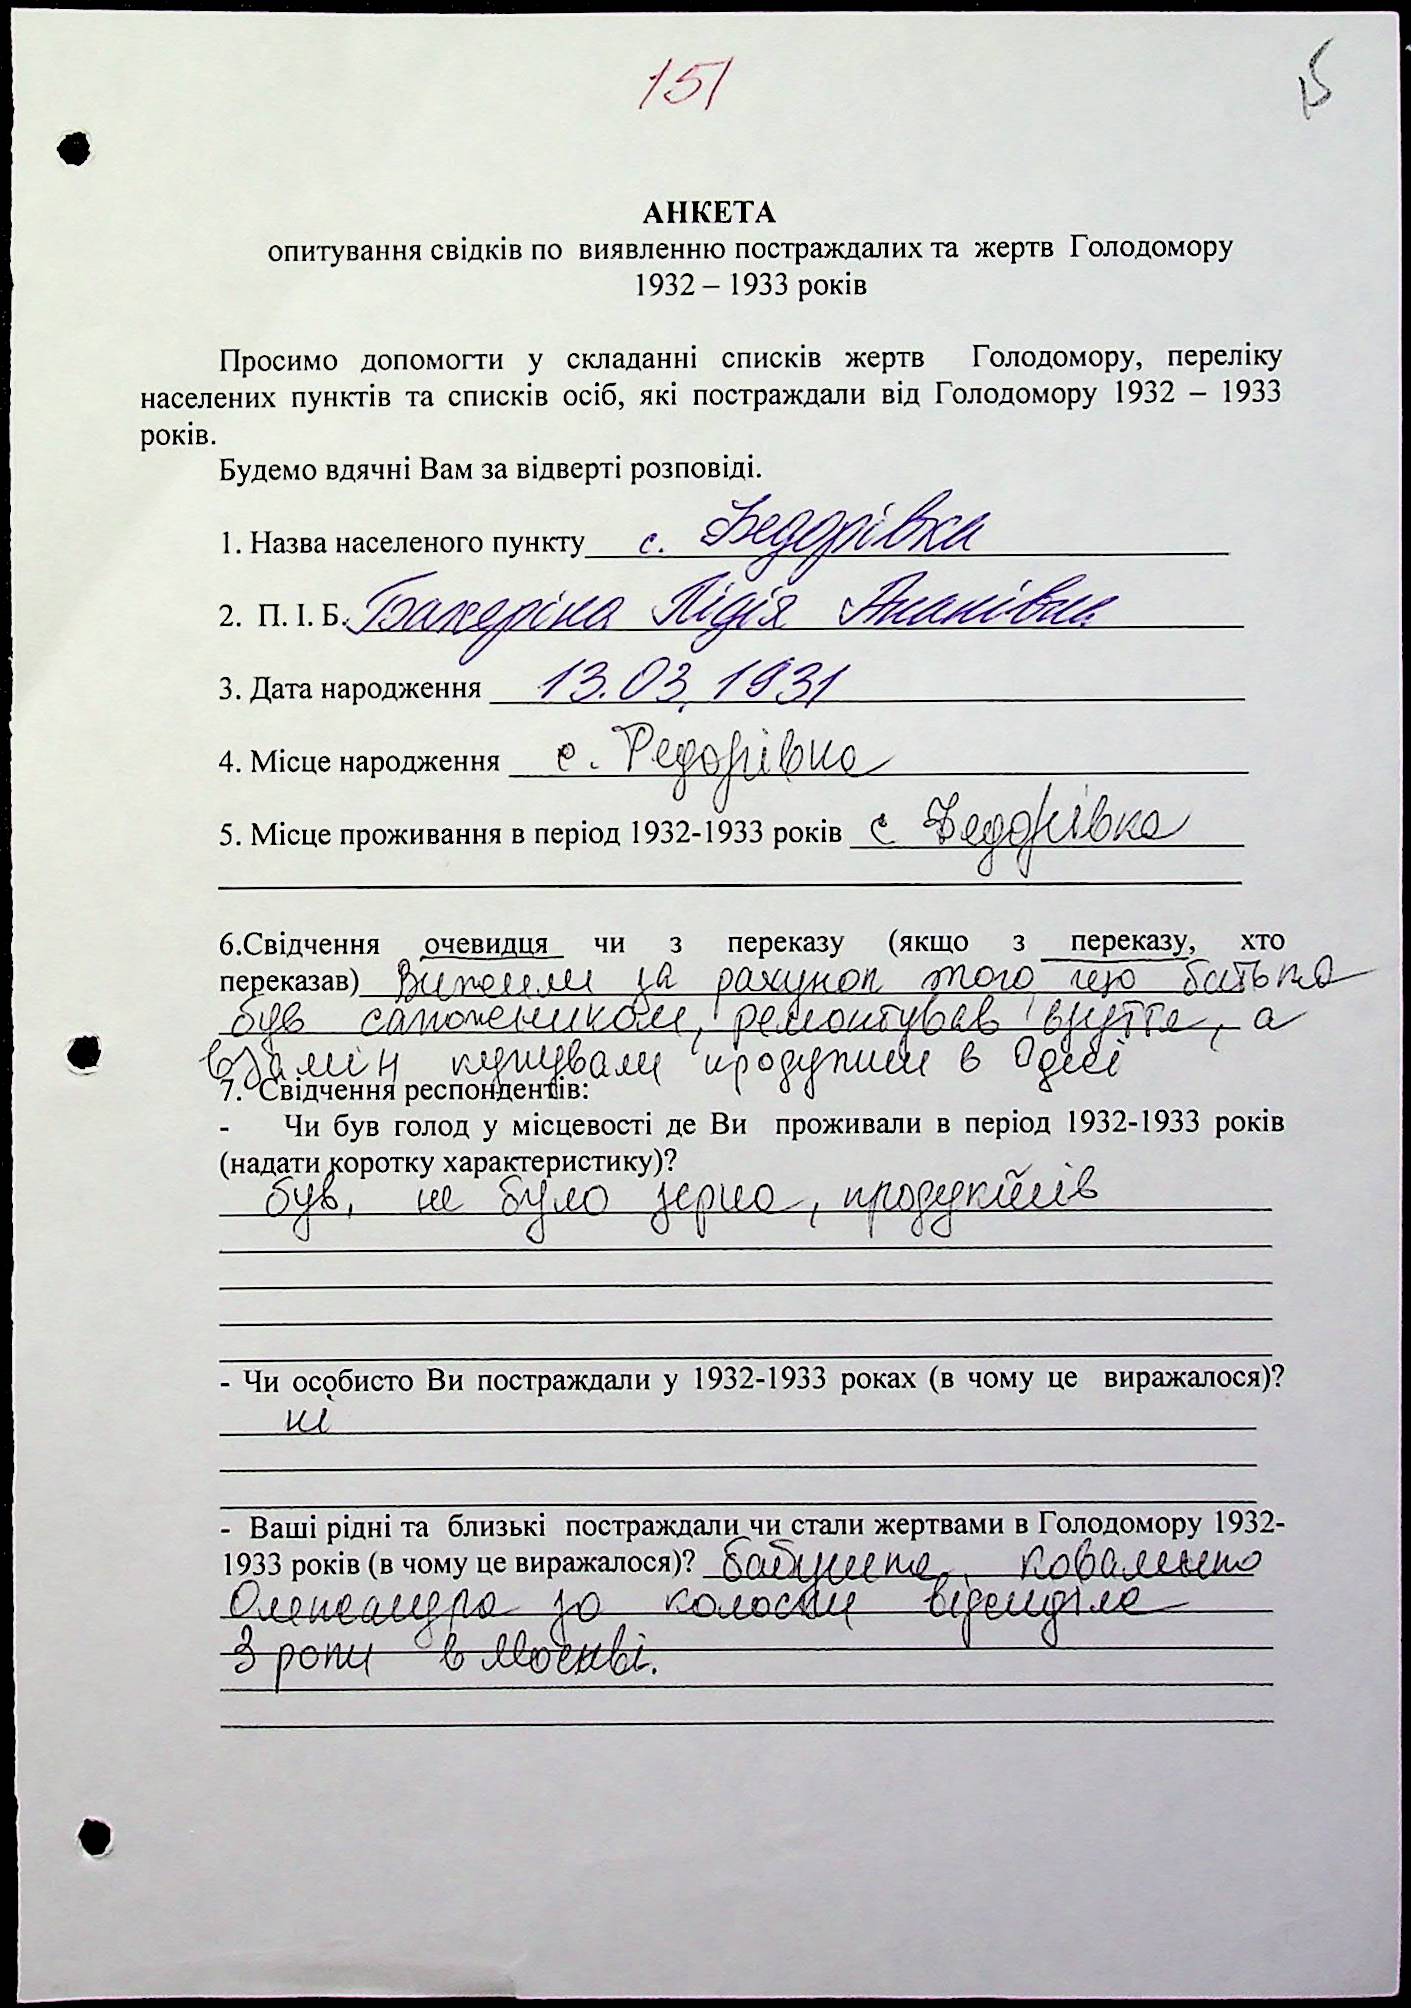 151
15
АНКЕТА
опитування свідків по виявленню постраждалих та жертв Голодомору
1932 – 1933 років
Просимо допомогти у складанні списків жертв Голодомору, переліку
населених пунктів та списків осіб, які постраждали від Голодомору 1932 – 1933
років.
Будемо вдячні Вам за відверті розповіді.
1. Назва населеного пункту с. Федорівка
2. П. І. Б. Бахеріна Лідія Ананівна
3. Дата народження 13.03.1931
4. Місце народження с. Федорівка
5. Місце проживання в період 1932-1933 років с Федорівка
6.Свідчення очевидця чи з переказу (якщо з переказу, хто
переказав) Вижили за рахунок того що батько
був сапожником, ремонтував взуття, а
взамін купували продукти в Одесі
7. Свідчення респондентів:
- Чи був голод у місцевості де Ви проживали в період 1932-1933 років
(надати коротку характеристику)?
був, не було зерна, продуктів
- Чи особисто Ви постраждали у 1932-1933 роках (в чому це виражалося)?
ні
- Ваші рідні та близькі постраждали чи стали жертвами в Голодомору 1932-
1933 років (в чому це виражалося)? бабушка
Олександра за колоски відсиділа
3 роки в Москві.